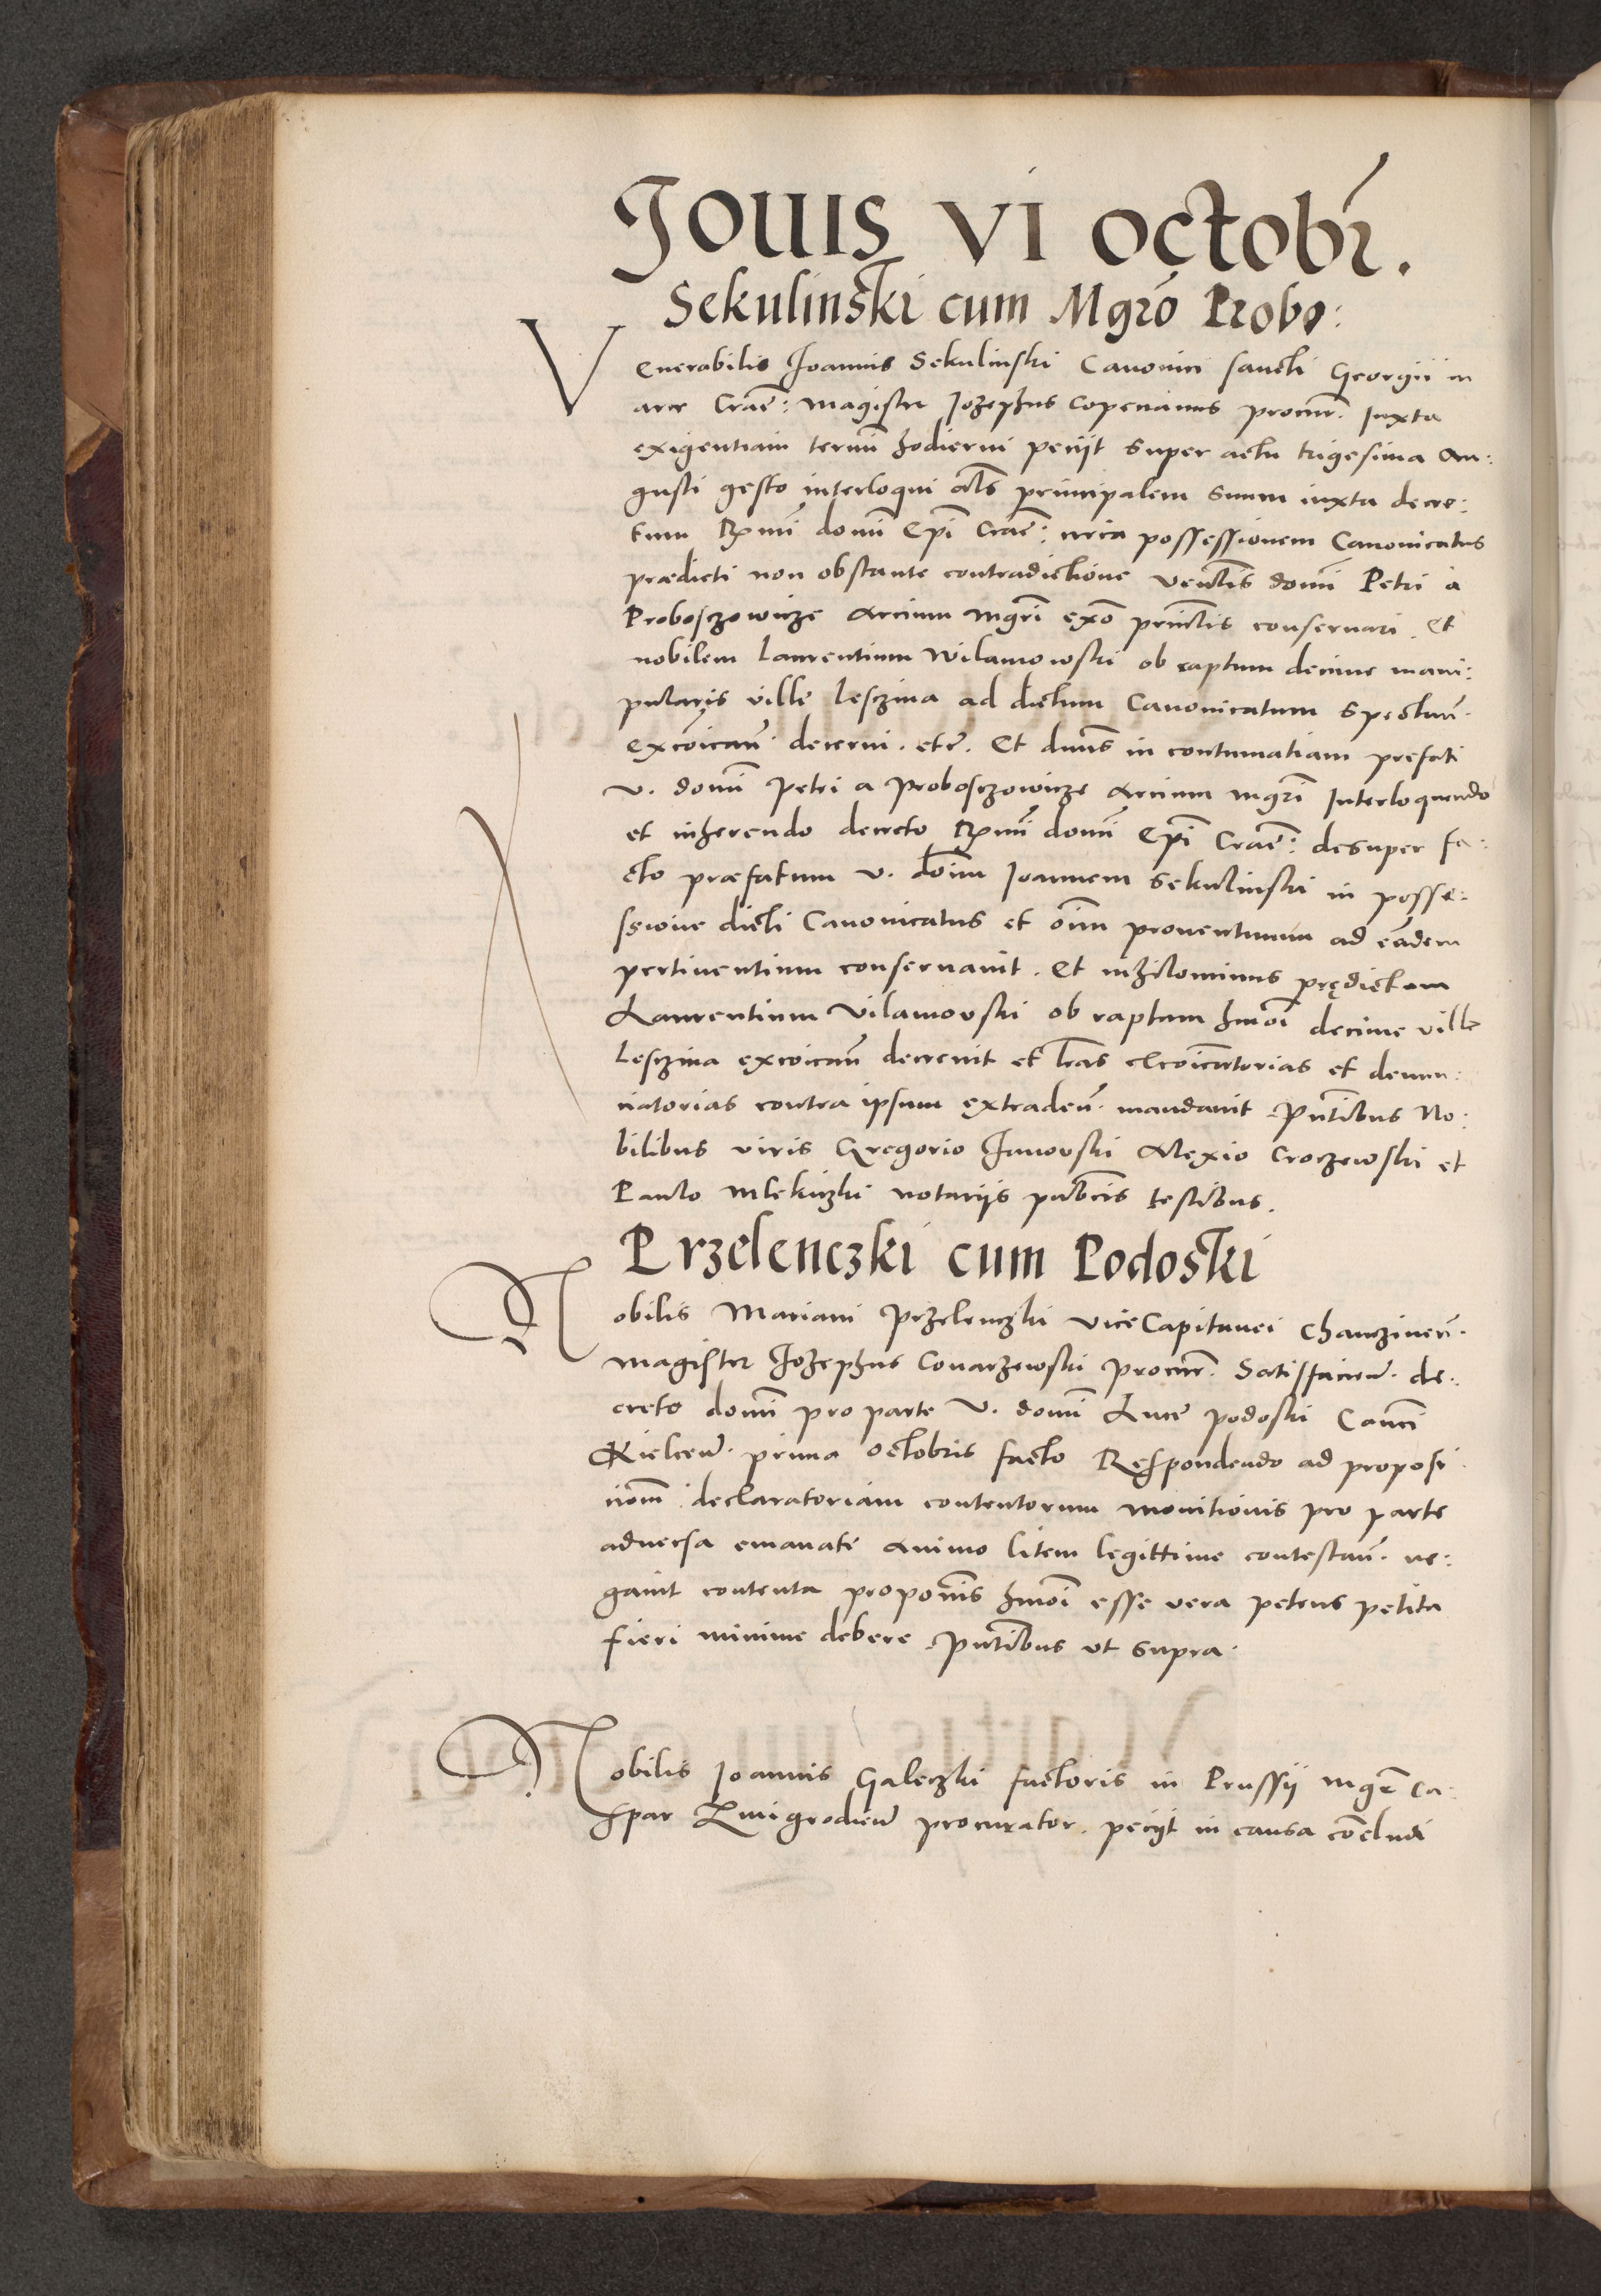 Jouis VI octobr̃.
Sekulinski cum Mgrõ Probo:
Venerabilis Joannis Sekulinski Canonici sancti Georgii in
arce Craĉ: magister Jozephus Copenanus procur̃. Iuxta
exigentiam termĩ hodierni peciit super actu trigesima Au:
gusti gesto interloqui al̃s principalem suum iuxta decre:
tum R̃mĩ domĩ Ep̃i Craĉ: circa possessionem Canonicatus
prædicti non obstante contradictione Ven̄lis domĩ Petri à
Proboszowicze Arcium mgr̃i ex̃o princĩlis conseruari. Et
nobilem Laurentium Wilamowski ob raptum decime mani:
pularis ville Lesczina ad dictum Canonicatum spectañ.
excõicañ. decerni. etc̃. Et dñus in contumatiam prefati
v. domĩ Petri a Proboszowicze Arcium mgr̃i Interloquendo
et inherendo decreto R̃mĩ domĩ Ep̃i Craĉ: desuper fa:
cto præfatum v. dom̃ Joannem Sekulinski in posse:
ssione dicti Canonicatus et oĩm prouentuum ad eũdem
pertinentium conseruauit. Et nihilominus prędictum
Laurentium Vilamovski ob raptum hmõi decime ville
Lesczina excõicañ decreuit et lr̃as excõicatorias et denun:
ciatorias contra ipsum extradeñ. mandauit. Pñtibus No:
bilibus viris Gregorio Janovski Alexio Croczewski et
Paulo Mlekiczki notariis pub̃cis testibus.
Przelenczki cum Podoski
Nobilis Mariani Przelenczki ViceCapitanei Chanczineñ.
magister Jozephus Conarzewski procur̃. Satisfacieñ. de:
creto domĩ pro parte V. domĩ Luce Podoski Canc̃i
Kielceñ. prima octobris facto Respondendo ad proposi
cionẽ declaratoriam contentorum monitionis pro parte
aduersa emanati animo litem legittime contestañ. ne:
gauit contenta propõnis hmõi esse vera petens petita
fieri minime debere. Pñtibus ut supra.
Nobilis Joannis Galeczki factoris in Prussii mgr̃ Ca:
spar Zmigrodieñ procurator. peciit in causa cõcludi